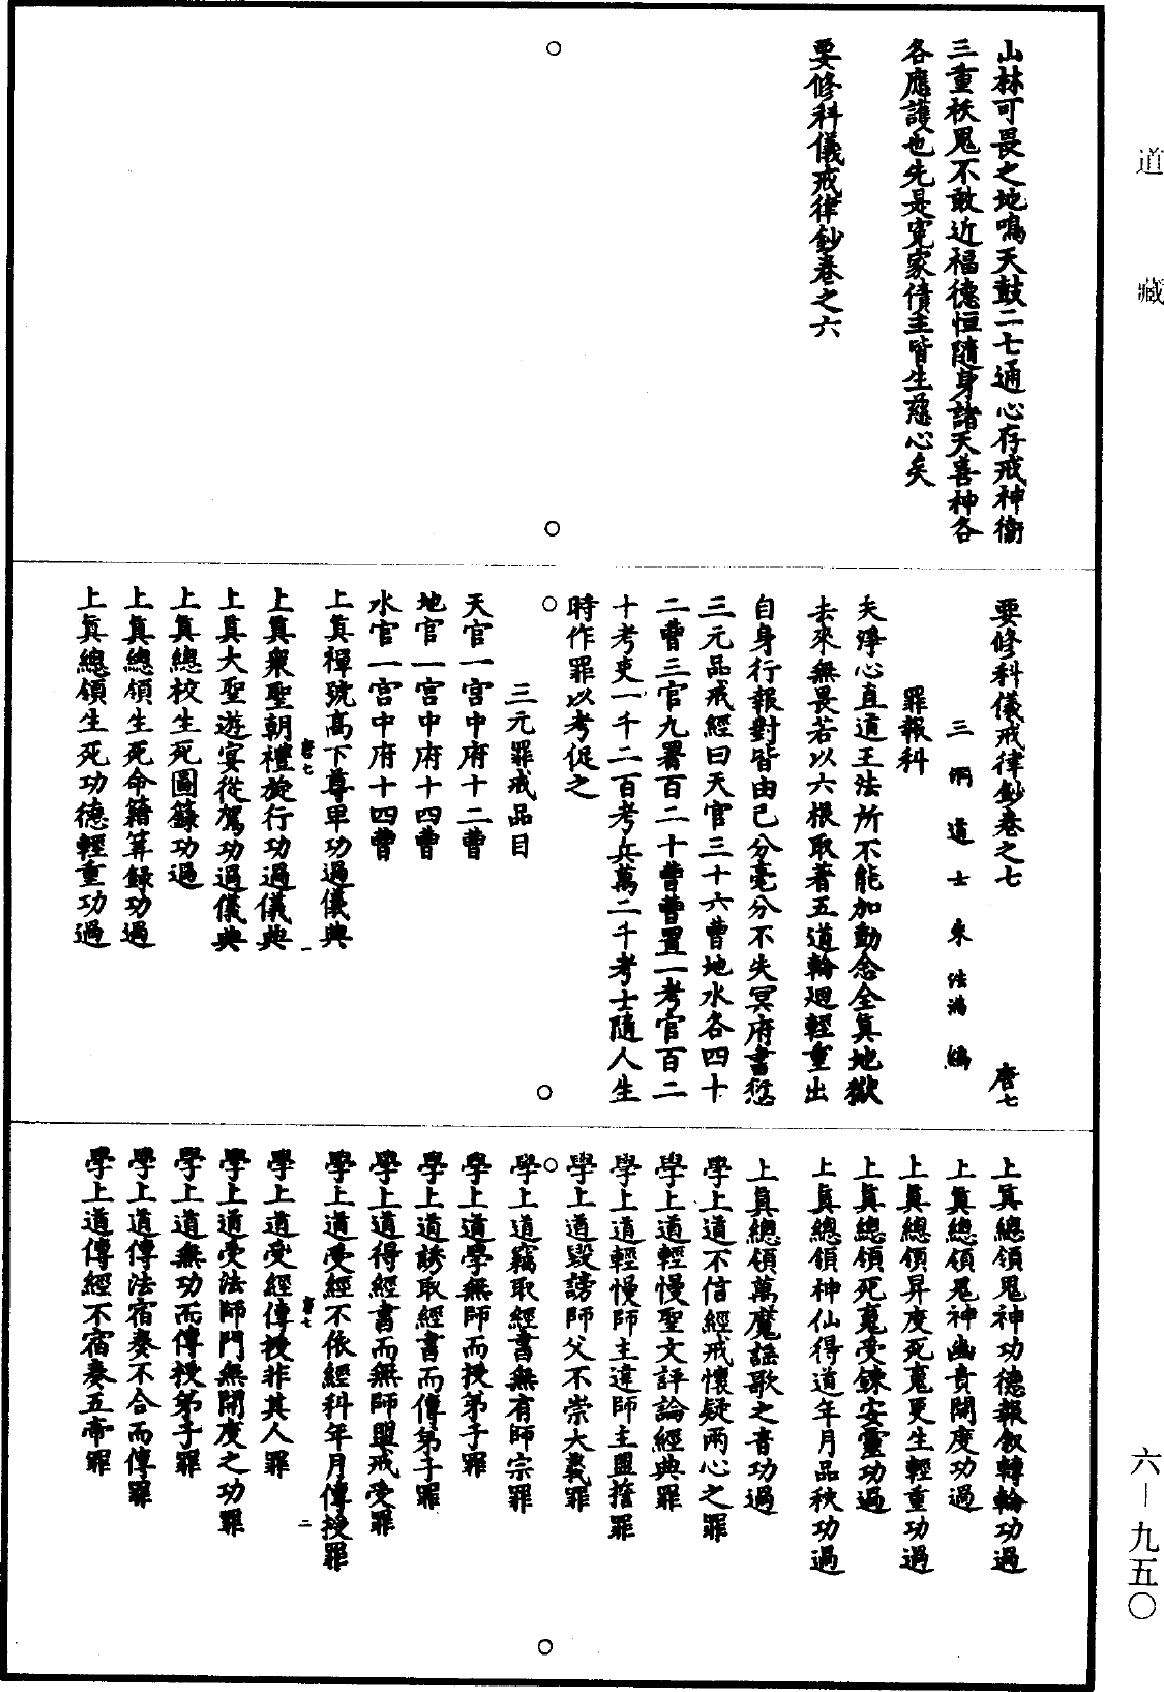 道藏
山林可畏之地鳴天鼓二七通心存戒神衞
三重袄鬼不敢近福德恒隨身諸天善神各
各應護也先是寃家債主皆生慈心矣
要修科儀戒律鈔卷之六
要修科儀戒律鈔卷之七 唐七
三洞道士朱法滿編
罪報科
夫淨心直道王法所不能加動念全眞地獄
去來無畏若以六根取著五道輪迴輕重出
自身行報對皆由已分毫分不失冥府書愆
三元品戒經曰天官三十六曹地水各四十
二曹三官九署百二十曹曹置一考官百二
十考吏一千二百考兵萬二千考士隨人生
時作罪以考促之
三元罪戒品目
天官一宮中府十二曹
地官一宮中府十四曹
水官一宮中府十四曹
上眞禪號高下尊卑功過儀典
唐七 一
上眞衆聖朝禮旋行功過儀典
上眞大聖遊宴從駕功過儀典
上眞總校生死圖籙功過
上眞總領生死命籍筭録功過
上眞總領生死功德輕重功過
上眞總領鬼神功德報敘轉輪功過
上眞總領鬼神幽責開度功過
上眞總領昇度死䰟更生輕重功過
上眞總領死䰟受鍊安靈功過
上眞總領神仙得道年月品秩功過
上眞總領萬魔謡歌之音功過
學上道不信經戒懷疑兩心之罪
學上道輕慢聖文評論經典罪
學上道輕慢師主違師主盟誓罪
學上道毀謗師父不崇大義罪
學上道竊取經書無有師宗罪
學上道學無師而授弟子罪
學上道誘取經書而傳弟子罪
學上道得經書而無師盟戒受罪
學上道受經不依經科年月傳授罪
唐七 二
學上道受經傳授非其人罪
學上道受法師門無開度之功罪
學上道無功而傳授弟子罪
學上道傳法宿奏不合而傳罪
學上道傳經不宿奏五帝罪
六—九五〇